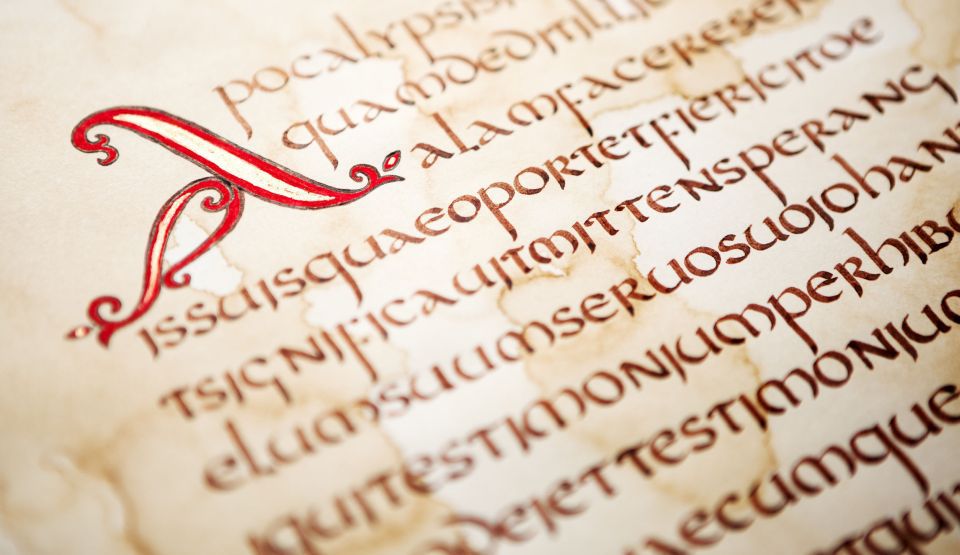 Apocalypsis
quamdeditilli
alamfacereser
issuisquaeoportetfiericitoe
tsignificauitmittensperang
elumsuumseruosuojohann
iquitestimoniumperhib
odeiettestimoniuo
aecumque